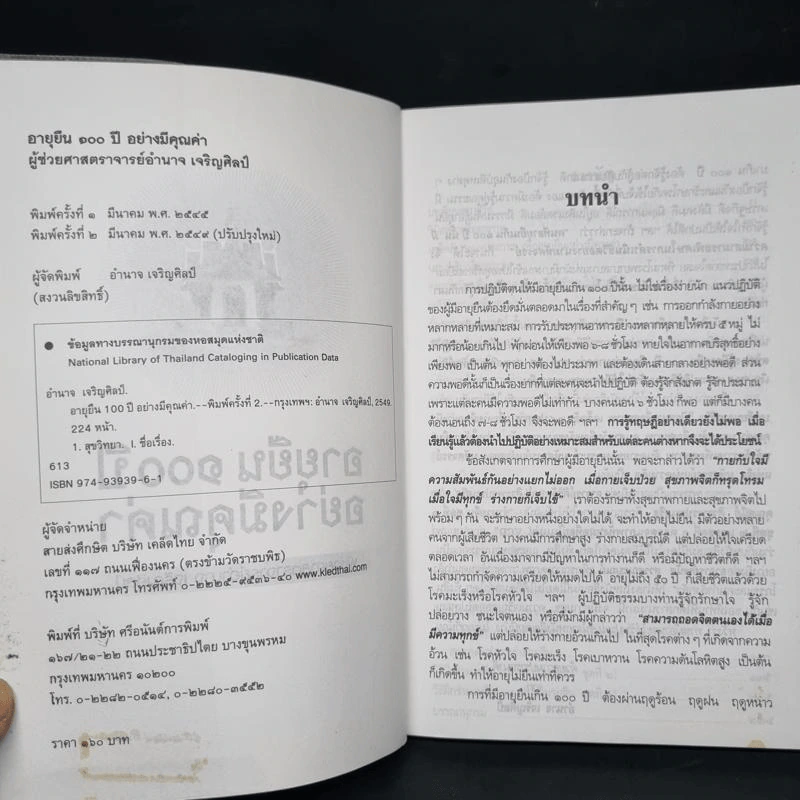 อายุยืน ๑๐๐ ปี อย่างมีคุณค่า
ผู้ช่วยศาสตราจารย์อำนาจ เจริญศิลป์
พิมพ์ครั้งที่ ๑ มีนาคม พ.ศ. ๒๕๔๕
พิมพ์ครั้งที่ ๒ มีนาคม พ.ศ. ๒๕๔๙ (ปรับปรุงใหม่)
ผู้จัดพิมพ์ อำนาจ เจริญศิลป์
(สงวนลิขสิทธิ์)
● ข้อมูลทางบรรณานุกรมของหอสมุดแห่งชาติ
National Library of Thailand Cataloging in Publication Data
อำนาจ เจริญศิลป์.
อายุยืน 100 ปี อย่างมีคุณค่า.--พิมพ์ครั้งที่ 2.--กรุงเทพฯ: อำนาจ เจริญศิลป์, 2549.
224 หน้า.
1. สุขวิทยา. I. ชื่อเรื่อง.
613
ISBN 974-93939-6-1
ผู้จัดจำหน่าย
สายส่งศึกษิต บริษัท เคล็ดไทย จำกัด
เลขที่ ๑๑๗ ถนนเฟื่องนคร (ตรงข้ามวัดราชบพิธ)
กรุงเทพมหานคร โทรศัพท์ ๐-๒๒๒๕-๙๕๓๖-๔๐ www.kledthai.com
พิมพ์ที่ บริษัท ศรีอนันต์การพิมพ์
๑๖๗/๒๑-๒๒ ถนนประชาธิปไตย บางขุนพรหม
กรุงเทพมหานคร ๑๐๒๐๐
โทร. ๐-๒๒๘๒-๐๕๑๔, ๐-๒๒๘๐-๓๕๕๒
ราคา ๑๖๐ บาท
บทนำ
การปฏิบัติตนให้มีอายุยืนเกิน ๑๐๐ ปีนั้น ไม่ใช่เรื่องง่ายนัก แนวปฏิบัติ
ของผู้มีอายุยืนต้องยึดมั่นตลอดมาในเรื่องที่สำคัญๆ เช่น การออกกำลังกายอย่าง
หลากหลายที่เหมาะสม การรับประทานอาหารอย่างหลากหลายให้ครบ ๕ หมู่ ไม่
มากหรือน้อยเกินไป พักผ่อนให้เพียงพอ ๖-๘ ชั่วโมง หายใจในอากาศบริสุทธิ์อย่าง
เพียงพอ เป็นต้น ทุกอย่างต้องไม่ประมาท และต้องเดินสายกลางอย่างพอดี ส่วน
ความพอดีนั้นก็เป็นเรื่องยากที่แต่ละคนจะนำไปปฏิบัติ ต้องรู้จักสังเกต รู้จักประมาณ
เพราะแต่ละคนมีความพอดีไม่เท่ากัน บางคนนอน ๖ ชั่วโมง ก็พอ แต่ก็มีบางคน
ต้องนอนถึง ๗-๘ ชั่วโมง จึงจะพอดี ฯลฯ การรู้ทฤษฎีอย่างเดียวยังไม่พอ เมื่อ
เรียนรู้แล้วต้องนำไปปฏิบัติอย่างเหมาะสมสำหรับแต่ละคนต่างหากจึงจะได้ประโยชน์
ข้อสังเกตจากการศึกษาผู้มีอายุยืนนั้น พอจะกล่าวได้ว่า "กายกับใจมี
ความสัมพันธ์กันอย่างแยกไม่ออก เมื่อกายเจ็บป่วย สุขภาพจิตก็ทรุดโทรม
เมื่อใจมีทุกข์ ร่างกายก็เจ็บไข้" เราต้องรักษาทั้งสุขภาพกายและสุขภาพจิตไป
พร้อมๆ กัน จะรักษาอย่างหนึ่งอย่างใดไม่ได้ จะทำให้อายุไม่ยืน มีตัวอย่างหลาย
คนจากผู้เสียชีวิต บางคนมีการศึกษาสูง ร่างกายสมบูรณ์ดี แต่ปล่อยให้ใจเครียด
ตลอดเวลา อันเนื่องมาจากมีปัญหาในการทำงานก็ดี หรือมีปัญหาชีวิตก็ดี ฯลฯ
ไม่สามารถกำจัดความเครียดให้หมดไปได้ อายุไม่ถึง ๕๐ ปี ก็เสียชีวิตแล้วด้วย
โรคมะเร็งหรือโรคหัวใจ ฯลฯ ผู้ปฏิบัติธรรมบางท่านรู้จักรักษาใจ รู้จัก
ปล่อยวาง ชนะใจตนเอง หรือที่มักมีผู้กล่าวว่า "สามารถถอดจิตตนเองได้เมื่อ
มีความทุกข์" แต่ปล่อยให้ร่างกายอ้วนเกินไป ในที่สุดโรคต่างๆ ที่เกิดจากความ
อ้วน เช่น โรคหัวใจ โรคมะเร็ง โรคเบาหวาน โรคความดันโลหิตสูง เป็นต้น
ก็เกิดขึ้น ทำให้อายุไม่ยืนเท่าที่ควร
การที่มีอายุยืนเกิน ๑๐๐ ปี ต้องผ่านฤดูร้อน ฤดูฝน ฤดูหนาว